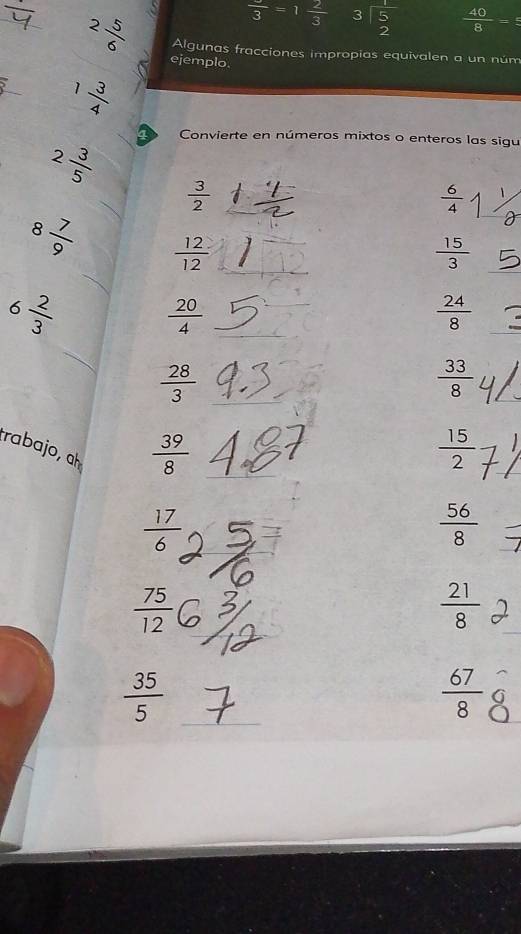 /4
2 5/6
/3 = 1 2/3 3 5 2
40/8 =
Algunas fracciones impropias equivalen a un núm
ejemplo.
1 3/4
4 Convierte en números mixtos o enteros las sigu
2 3/5
3/2 1 1/2 6/4 1 1/2
8 7/9
12/12 1 15/3 5
6 2/3
20/4 5 24/8
28/3 9.3 33/8 4
trabajo, ah
39/8 4.87 15/2 7 1/
17/6 2 5/6 56/8 7
75/12 6 3/12 21/8 2
35/5 7 67/8 8